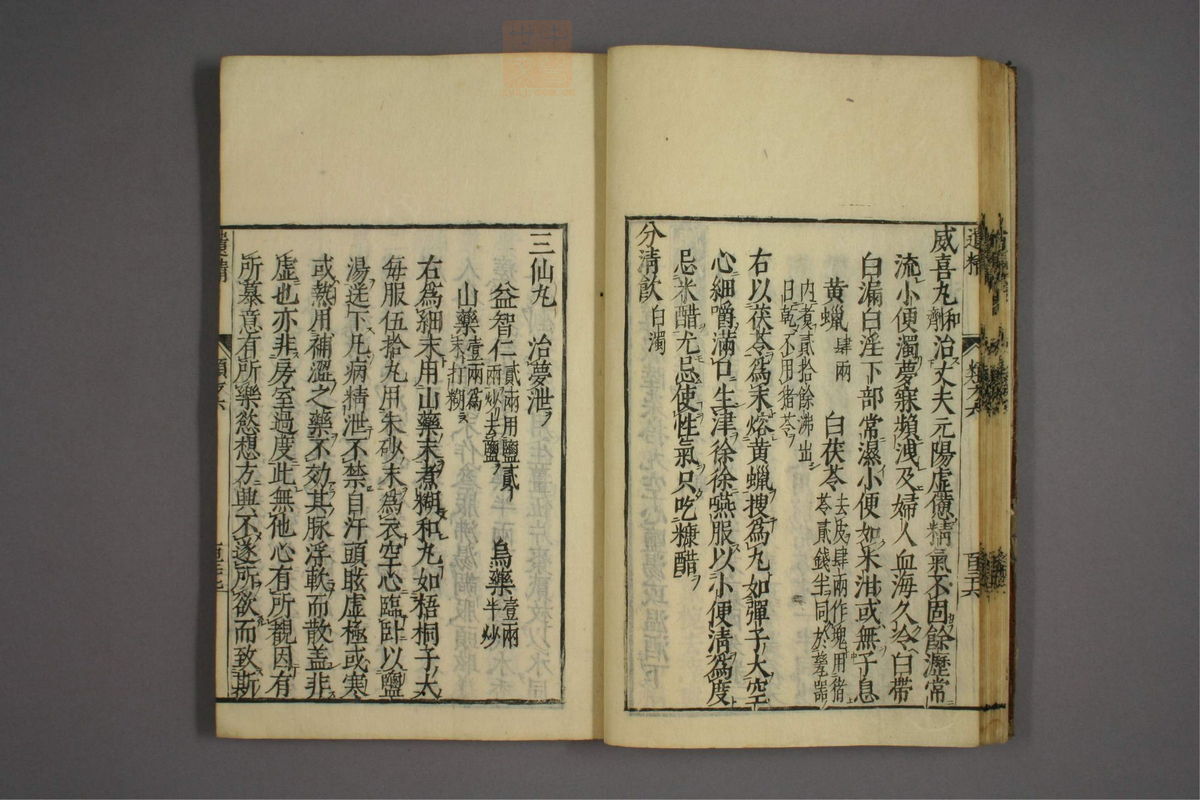 威喜丸和劑治丈夫元陽虛憊精氣不固餘瀝常
流小便濁夢寐頻洩及婦人血海久冷白帶
白漏白淫下部常濕小便如米泔或無子息
黃蠟肆兩 白茯苓去皮肆兩作塊用猪苓貳錢半同於甆器
內煮貳拾餘沸出日乾不用猪苓
右以茯苓爲末熔黃蠟搜爲丸如彈子大空
心細嚼滿口生津徐徐嚥服以小便清爲度
忌米醋尤忌使性氣只吃糠醋
分清飲 白濁
三仙丸 治夢泄
益智仁貳兩用鹽貳兩炒去鹽 烏藥壹兩半炒
山藥壹兩爲末打糊
右爲細末用山藥末煮糊和丸如梧桐子大
每服伍拾丸用朱砂末爲衣空心臨卧以鹽
湯送下凡病精泄不禁自汗頭眩虛極或寒
或熱用補澀之藥不効其脉浮軟而散盖非
虛也亦非房室過度此無他心有所覩因有
所慕意有所樂慾想方興不遂所欲而致斯
遺精